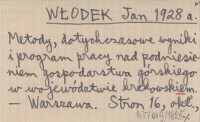 WŁODEK Jan 1928 a.
Metody, dotychczasowe wyniki
i program pracy nad podniesie-
niem gospodarstwa górskiego
w województwie krakowskiem.
— Warszawa. Stron 16, okł.,